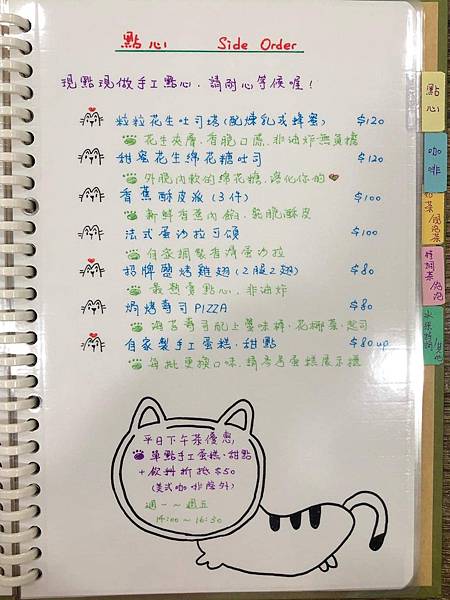 點心 Side Order
現點現做手工點心，請耐心等候喔！
粒粒花生吐司塔(配煉乳或蜂蜜) $120
花生夾層，香脆口感，非油炸無負擔
甜蜜花生綿花糖吐司 $120
外脆內軟的綿花糖，溶化你的
香蕉酥皮派(3件) $100
新鮮香蕉內餡，鬆脆酥皮
法式蛋沙拉可頌 $100
自家調製香滑蛋沙拉
招牌鹽烤雞翅(2腿2翅) $80
最熱賣點心，非油炸
焗烤壽司PIZZA $80
海苔壽司配上蟹味棒、花椰菜、起司
自家製手工蛋糕、甜點 $80 up
每批更換口味，請參考蛋糕展示櫃
平日下午茶優惠，
單點手工蛋糕、甜點
+飲料折抵$50
(美式咖啡除外)
週一～週五
14:00～16:30
點心
咖啡